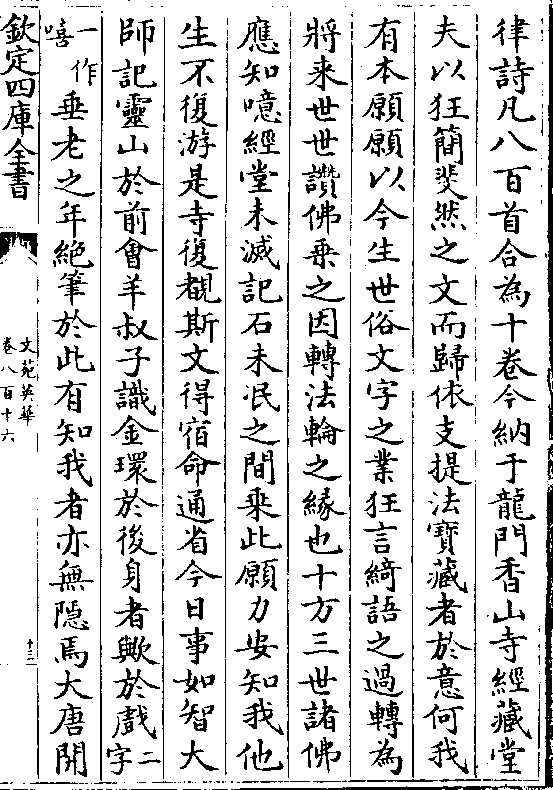 律詩凡八百首合為十卷今納于龍門香山寺經藏堂
夫以狂簡斐然之文而歸依支提法寳藏者於意何我
有本願願以今生世俗文字之業狂言綺語之過轉為
將来世世讚佛乗之因轉法輪之縁也十方三世諸佛
應知噫經堂未滅記石未泯之間乗此願力安知我他
生不復游是寺復覩斯文得宿命通省今日事如智大
師記靈山於前會羊叔子識金環於後身者歟於戲二字
一作嘻垂老之年絶筆於此有知我者亦無隱焉大唐開
欽定四庫全書
文苑英華
卷八百十六
十三